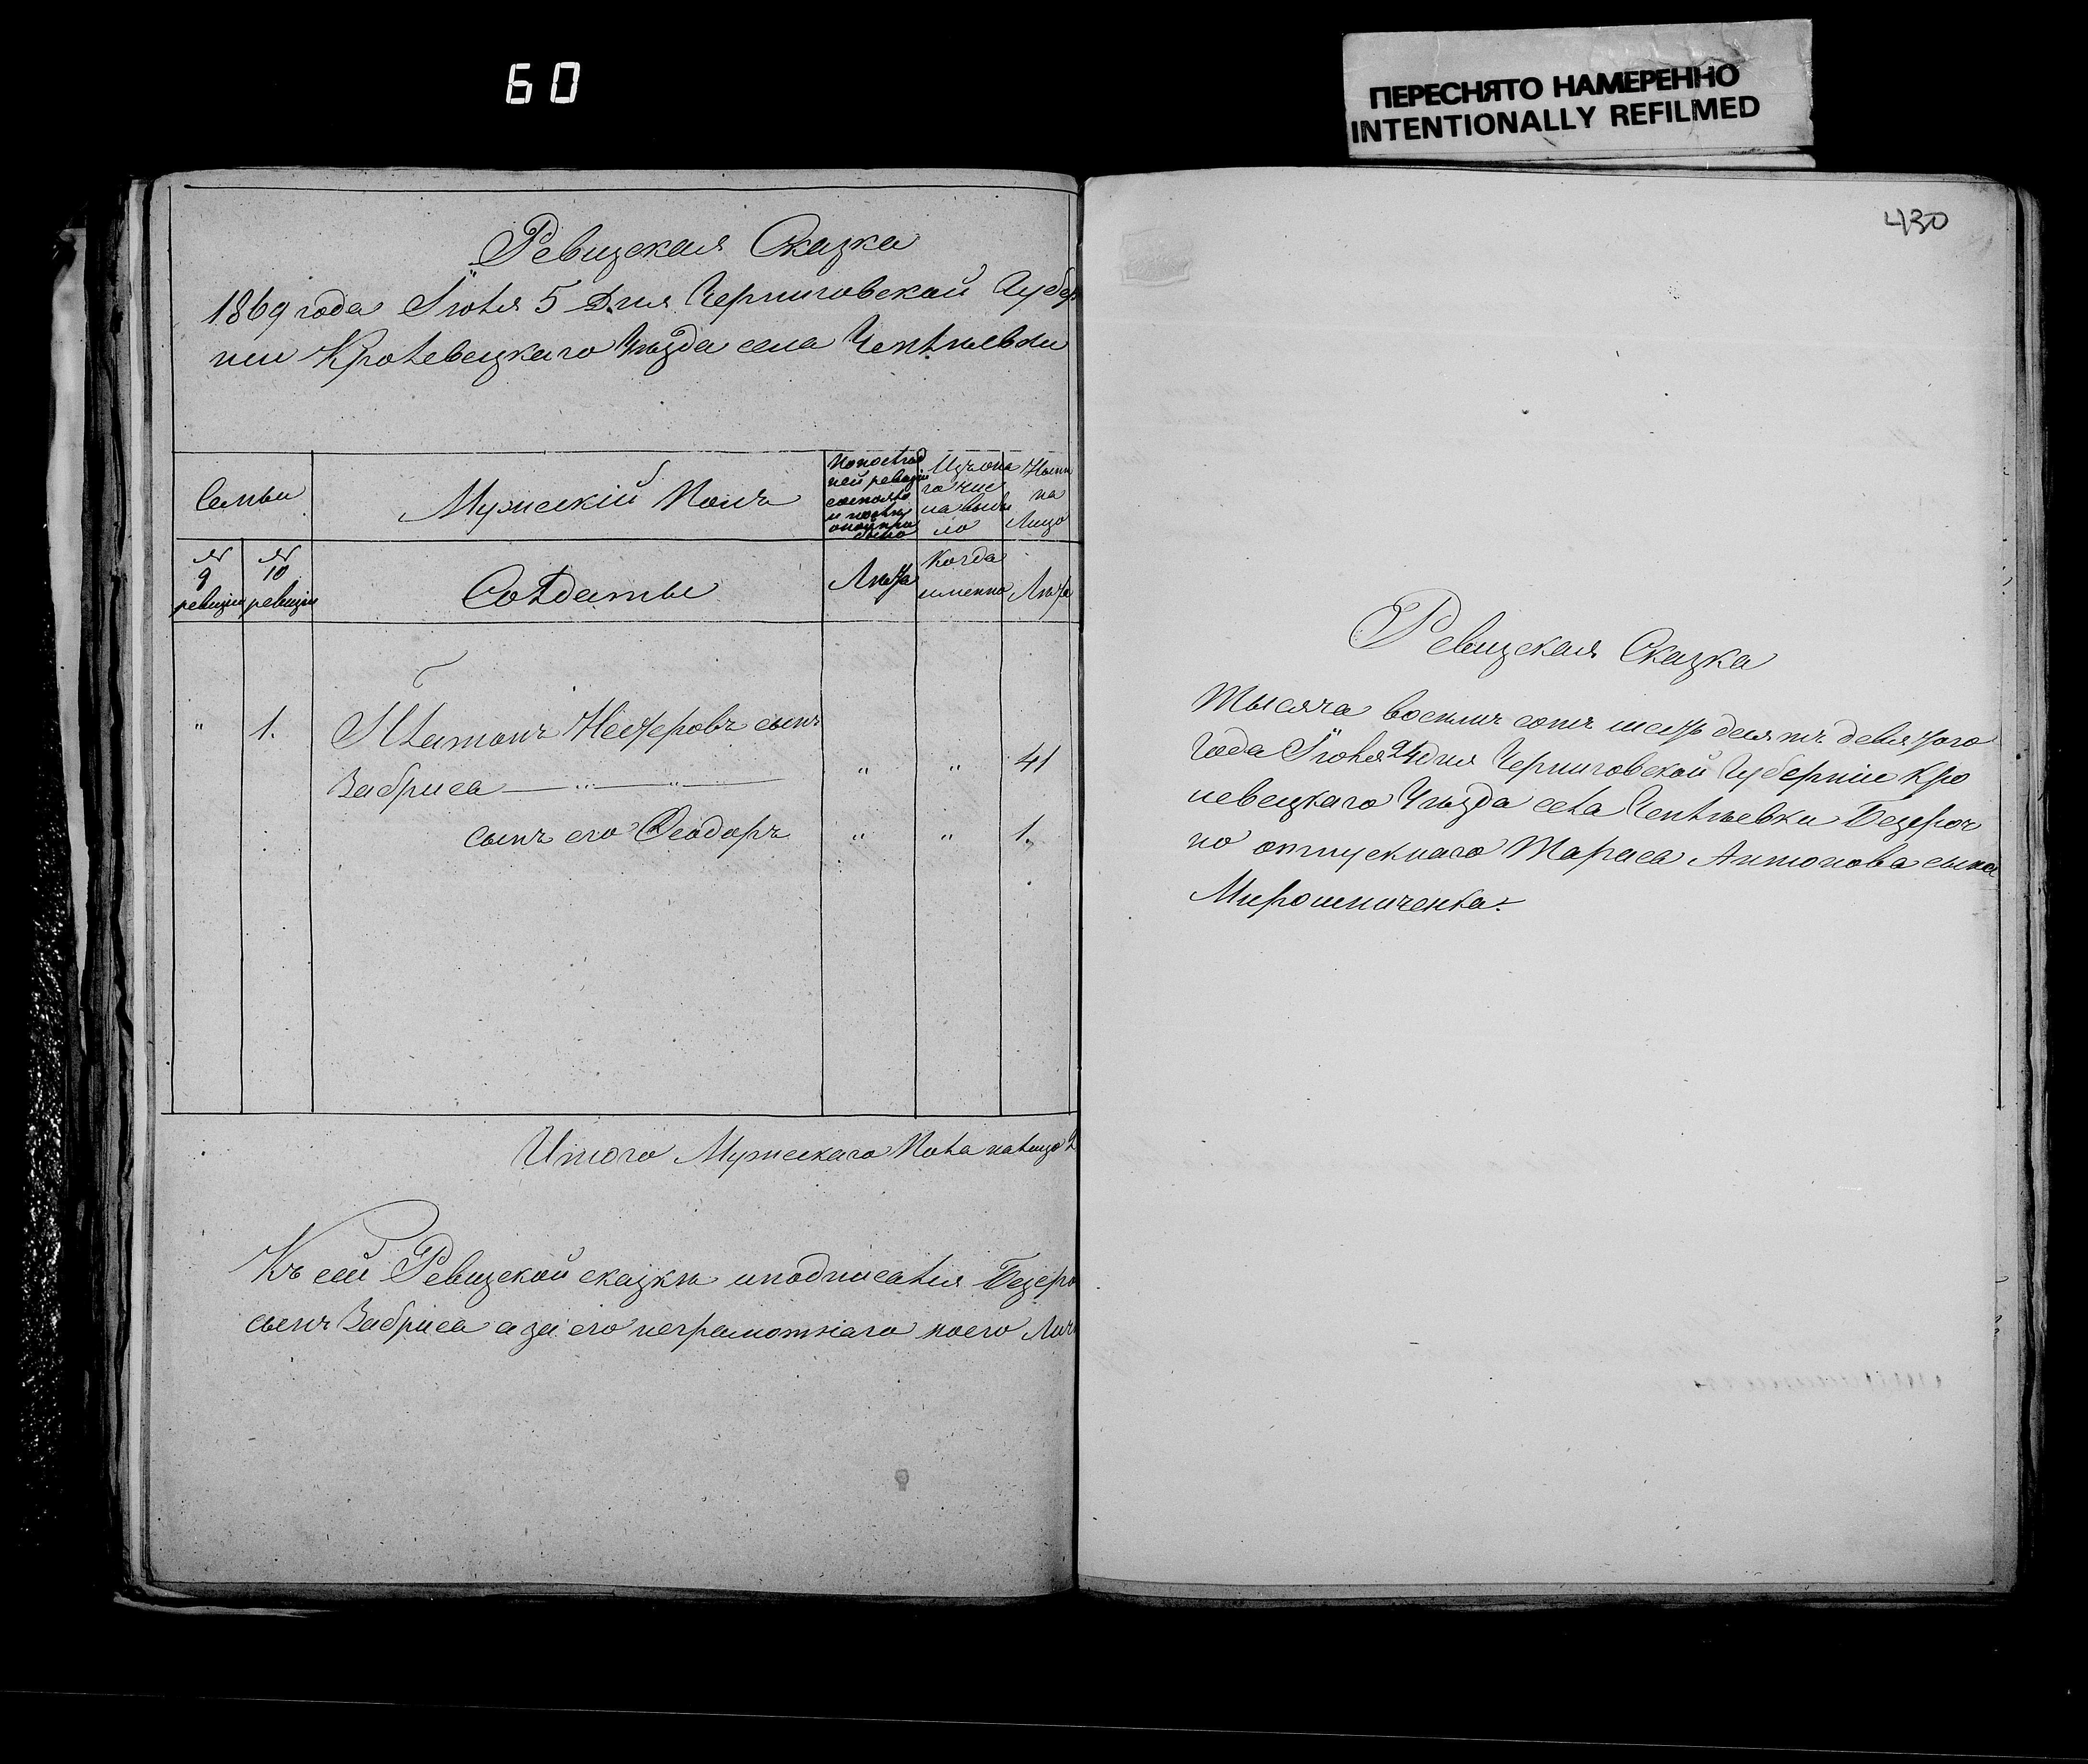 60
ПЕРЕСНЯТО НАМЕРЕННО
INTENTIONALLY REFILMED
Ревизская Сказка
1869 года Іюля 5 Дня Черниговской Губер
ніи Кролевецкаго Уѣзда села Чепліевки
Семьи
Мужескій Полъ
По послѣд
ней ревизіи
состояло
и послѣ
оной при
было
Изъ она
го чис
ла выбы
ло
Нынѣ
на
Лицо
№ 9 ревизіи
№ 10 ревизіи
Солдаты
Лѣта
Когда
именно
Лѣта
" 1. Платонъ Нестеровъ сынъ
Забриса — " — " — " " 41
сынъ его Ѳеодоръ " " 1.
Итого Мужескаго Пола налицо 2
Къ сей Ревизской сказкѣ Безеро
сынъ Забриса а за его неграмотнаго Лич
430
Ревизская Сказка
Тысяча восемь сотъ шестьдесятъ девятого
Года Іюля 24 дня Черниговской Губерніи Кро
левецкаго Уѣзда села Чепліевки Безсроч
но отпускнаго Тараса Антонова сына
Мирошниченка.